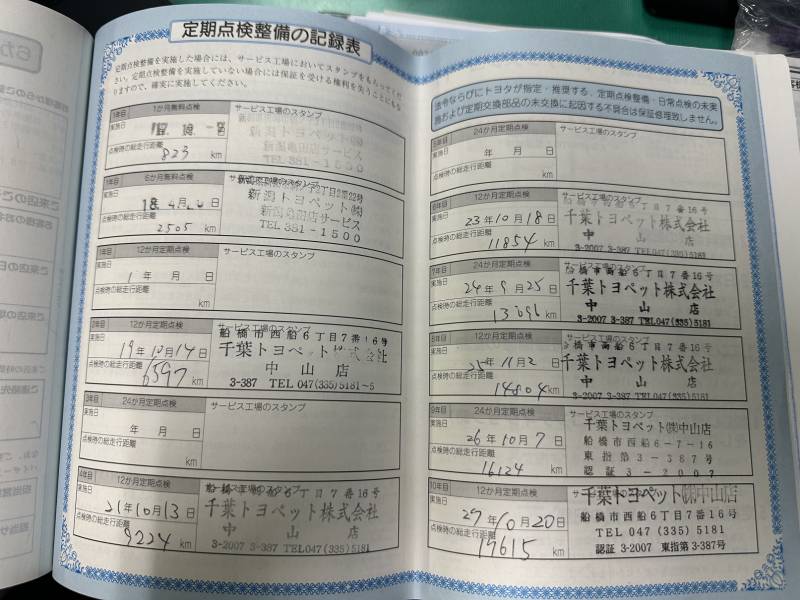 定期点検整備の記録表
定期点検整備を実施した場合には、サービス工場においてスタンプをもらってくだ
さい。定期点検整備を実施していない場合には保証を受ける権利を失うことにもな
りますので、確実に実施してください。
1年目 1か月無料点検 サービス工場のスタンプ
実施日
点検時の総走行距離
823 km
TEL 381-1500
1年目 6か月無料点検 サービス工場のスタンプ
実施日 18年4月 日
新潟トヨペット㈱
新潟亀田店サービス
TEL 381-1500
点検時の総走行距離
2505 km
1年目 12か月定期点検 サービス工場のスタンプ
実施日 1年 月 日
点検時の総走行距離
km
2年目 12か月定期点検 サービス工場のスタンプ
実施日 19年10月14日
船橋市西船6丁目7番16号
千葉トヨペット株式会社
中山店
3-387 TEL 047(335)5181~5
点検時の総走行距離
6597 km
3年目 24か月定期点検 サービス工場のスタンプ
実施日 年 月 日
点検時の総走行距離
km
4年目 12か月定期点検 サービス工場のスタンプ
実施日 21年10月13日
千葉トヨペット株式会社
中山店
3-2007 3-387 TEL047(335)5181
点検時の総走行距離
9224 km
法令ならびにトヨタが指定・推奨する、定期点検整備・日常点検の未実
施および定期交換部品の未交換に起因する不具合は保証修理致しません。
5年目 24か月定期点検 サービス工場のスタンプ
実施日 年 月 日
点検時の総走行距離
km
6年目 12か月定期点検 サービス工場のスタンプ
実施日 23年10月18日
千葉トヨペット株式会社
中山店
3-2007 3-387 TEL047(335)5181
点検時の総走行距離
11854 km
7年目 24か月定期点検 サービス工場のスタンプ
実施日 24年9月25日
船橋市西船6丁目7番16号
千葉トヨペット株式会社
中山店
3-2007 3-387 TEL047(335)5181
点検時の総走行距離
13096 km
8年目 12か月定期点検 サービス工場のスタンプ
実施日 25年11月2日
船橋市西船6丁目7番16号
千葉トヨペット株式会社
中山店
3-2007 3-387 TEL047(335)5181
点検時の総走行距離
14804 km
9年目 24か月定期点検 サービス工場のスタンプ
実施日 26年10月7日
千葉トヨペット㈱中山店
船橋市西船6-7-16
東指第3-387号
認証3-2007
点検時の総走行距離
16124 km
10年目 12か月定期点検 サービス工場のスタンプ
実施日 27年10月20日
千葉トヨペット㈱中山店
船橋市西船6丁目7番16号
TEL 047(335)5181
認証 3-2007 東指第3-387号
点検時の総走行距離
17615 km